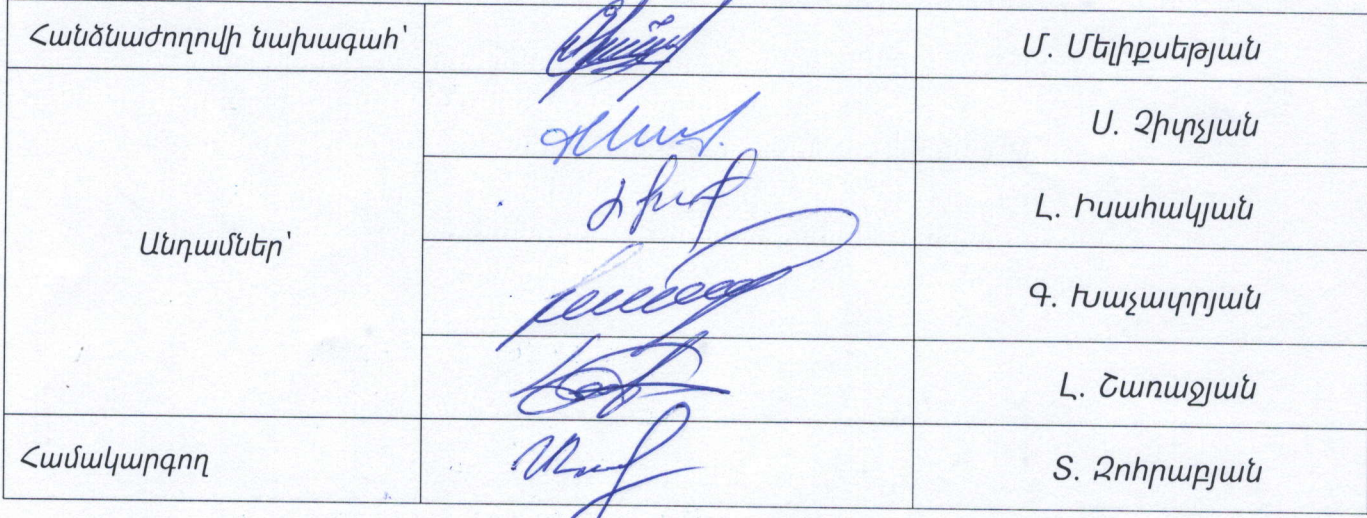 Հանձնաժողովի նախագահ՝
Մ. Մելիքսեթյան
Ս. Չիտչյան
Անդամներ՝
Լ. Իսահակյան
Գ. Խաչատրյան
Լ. Շառաջյան
Համակարգող
Տ. Զոհրաբյան